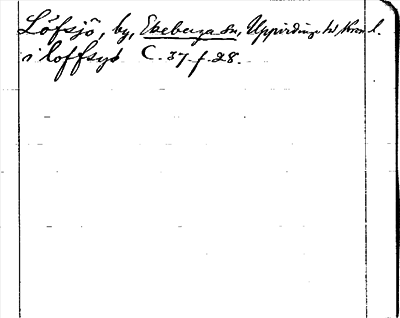 Löfsjö, by, Ekeberga sn, Uppvidinge hd, Kron. l.
i loffsyö C. 37. f. 28.